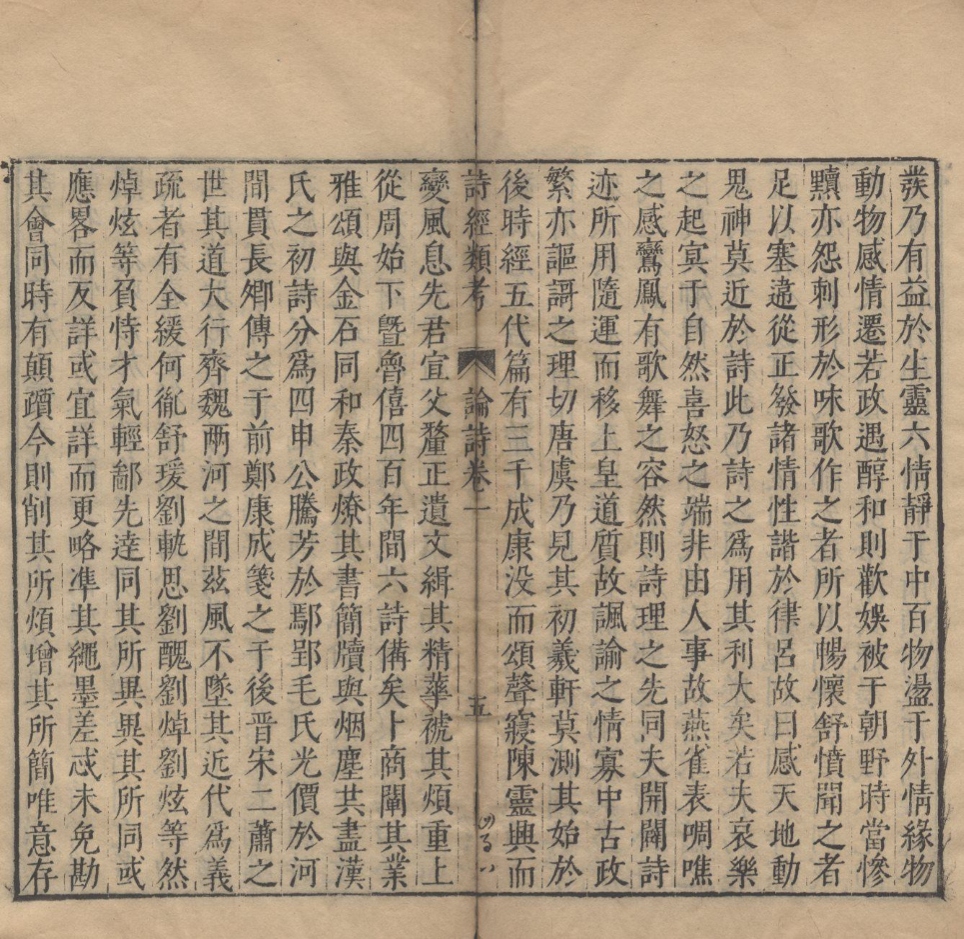 發乃有益於生靈六情靜于中百物盪于外情緣物
動物感情遷若政遇醇和則歡娛被于朝野時當慘
黷亦怨刺形於味歌作之者所以暢懷舒憤聞之者
足以塞違從正發諸情性諧於律呂故曰感天地動
鬼神莫近於詩此乃詩之爲用其利大矣若夫哀樂
之起冥于自然喜怒之端非由人事故燕雀表啁噍
之感鸞鳳有歌舞之容然則詩理之先同夫開闢詩
迹所用隨運而移上皇道質故諷諭之情寡中古政
繁亦謳謌之理切唐虞乃見其初羲軒莫測其始於
後時經五代篇有三千成康没而頌聲寢陳靈興而
詩經類考 論詩卷一 五
變風息先君宣父釐正遺文緝其精華褫其煩重上
從周始下曁魯僖四百年間六詩備矣卜商闡其業
雅頌與金石同和秦政燎其書簡牘與烟塵共盡漢
氏之初詩分爲四申公騰芳於鄢郢毛氏光價於河
間貫長卿傳之于前鄭康成箋之于後晋宋二蕭之
世其道大行齊魏兩河之間茲風不墜其近代爲義
疏者有全緩何胤舒瑗劉軌思劉醜劉焯劉炫等然
焯炫等負恃才氣輕鄙先逹同其所異異其所同或
應畧而反詳或宜詳而更略凖其繩墨差忒未免勘
其會同時有顛躓今則削其所煩增其所簡唯意存